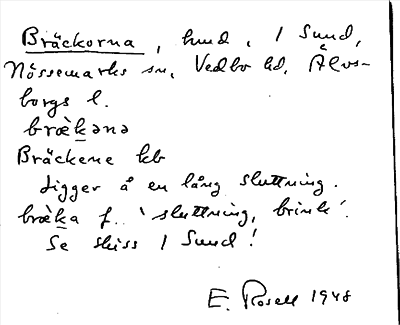 Bräckorna, hmd, 1 Sund,
Nössemarks sn, Vedbo hd, Älvs-
borgs l.
bræ̀kənə
Bräckene kb
Ligger å en lång sluttning.
bræ̀ka f. 'sluttning, brink'.
Se skiss 1 Sund!
E. Rosell 1948